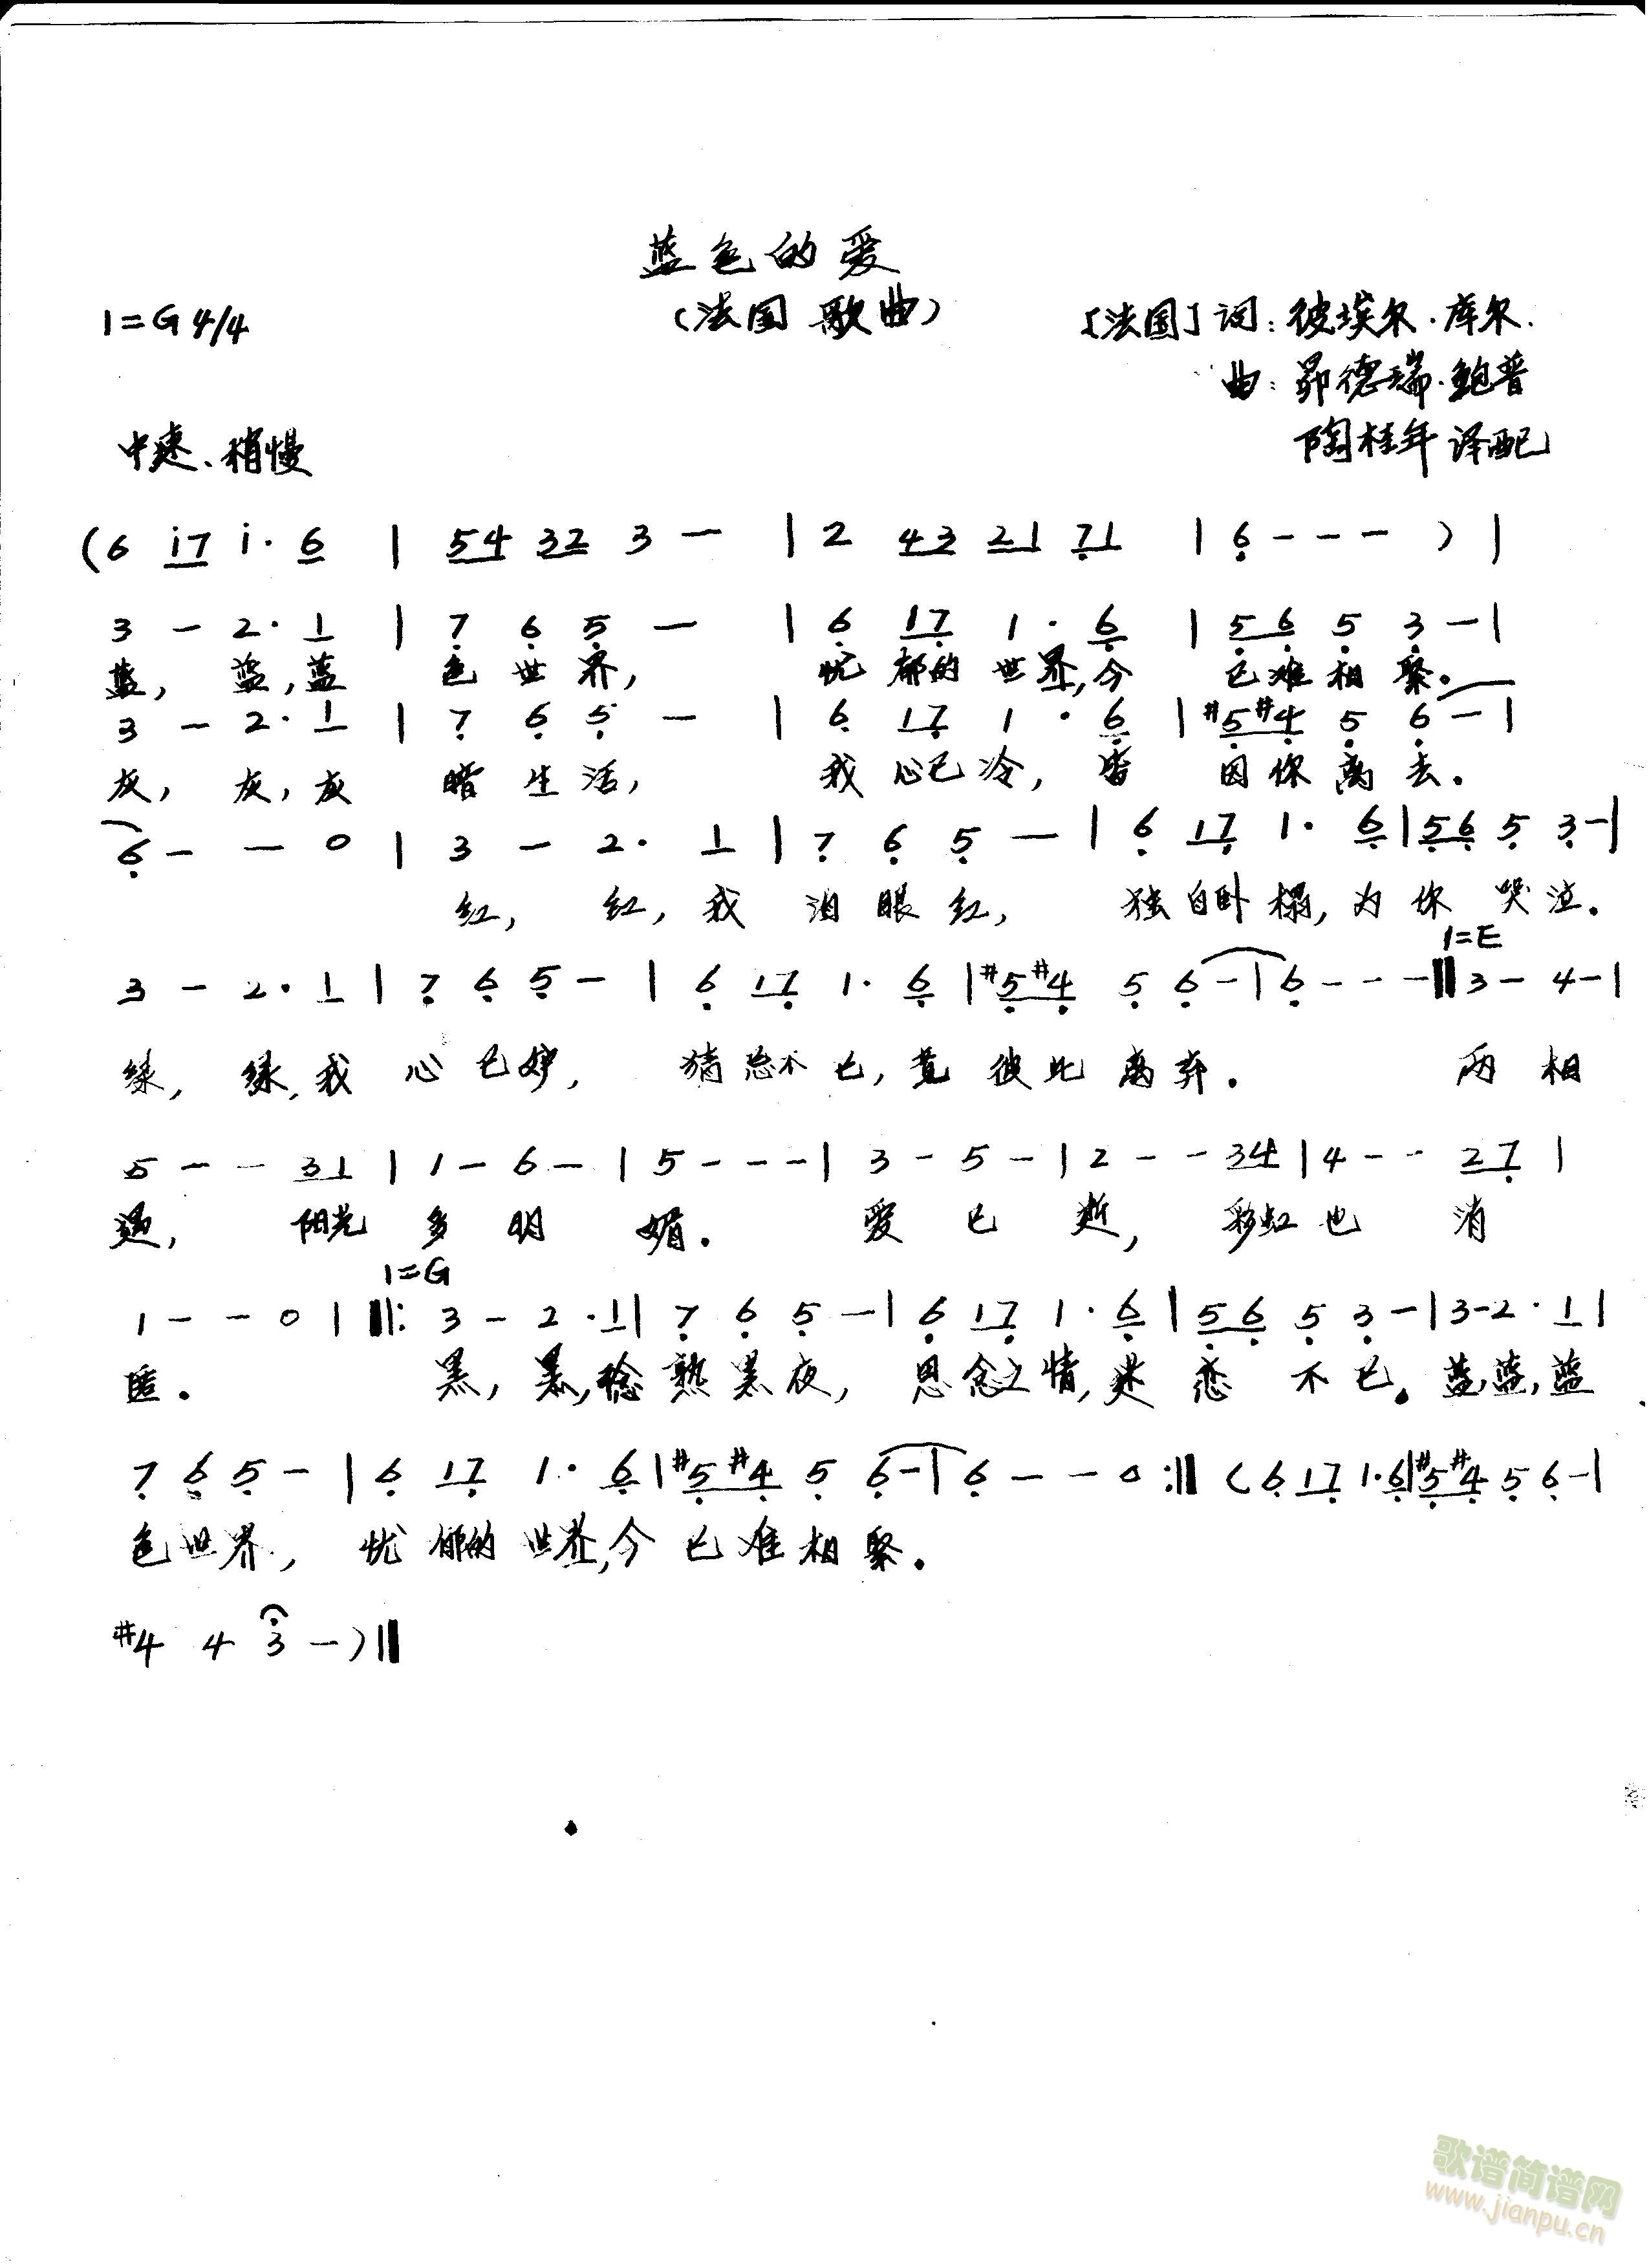 蓝色的爱
1=G 4/4 (法国 歌曲) [法国]词:彼埃尔·库尔.
曲:昴德瑞·鲍普
中速、稍慢 陶桂年 译配
(6 i7 i· 6 | 54 32 3 — | 2 43 21 71 | 6 - - - ) |
3 — 2· 1 | 7 6 5 — | 6 17 1 · 6 | 56 5 3 — |
蓝, 蓝,蓝 色 世 界, 忧 郁的 世 界,今 已难 相 聚。
3 — 2· 1 | 7 6 5 — | 6 17 1 · 6 | #5#4 5 6 — |
灰, 灰,灰 暗 生 活, 我 心已 冷, 皆 因你 离 去.
6 — — 0 | 3 — 2· 1 | 7 6 5 — | 6 17 1· 6 | 56 5 3 — |
红, 红,我 泪 眼 红, 独 自卧 榻,为 你 哭 泣.
1=E
3 — 2· 1 | 7 6 5 — | 6 17 1· 6 | #5#4 5 6 - | 6 - - - || 3 — 4 — |
绿, 绿,我 心 已 妒, 猜 忌不 已,竟 彼 此 离 弃. 两 相
5 — — 31 | 1 — 6 — | 5 - - - | 3 - 5 - | 2 - - 34 | 4 - - 27 |
遇, 阳光 多 明 媚. 爱 已 逝, 彩虹 也 消
1=G
1 — — 0 | ||: 3 — 2 · 1 | 7 6 5 — | 6 17 1 · 6 | 56 5 3 — | 3-2 · 1 |
匿. 黑, 黑,稔 熟 黑 夜, 思 念之 情,迷 恋 不 已。蓝,蓝,蓝
7 6 5 — | 6 17 1 · 6 | #5#4 5 6 - | 6 — — 0 :|| (6 17 1·6 | #5#4 5 6 - |
色 世 界, 忧 郁的 世 界,今 已 难 相 聚.
#4 4 3 — ) ||
歌谱简谱网
www.jianpu.cn